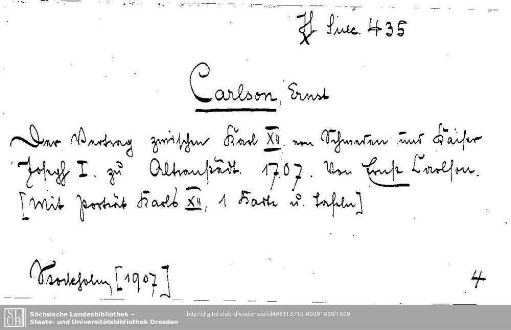 H Suec. 435
Carlson, Ernst
Der Vertrag zwischen Karl XII von Schweden und Kaiser
Joseph I. zu Altranstädt. 1707. Von Ernst Carlson.
[Mit Porträt Karls XII, 1 Karte u. Tafeln]
Stockholm, [1907]
4
SLUB
Sächsische Landesbibliothek –
Staats- und Universitätsbibliothek Dresden